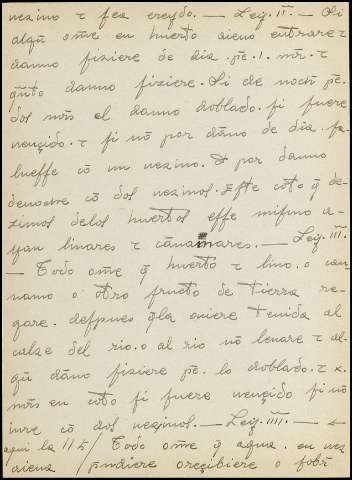 nezino τ fea creydo. — Ley. II. — Si
algũ om̃e en huerto aieno entrare τ
danno fiziere de dia . pẽ . I . mr̃ . τ
q̃nto danno fiziere. Si de noch pẽ.
dos mrs̃ el danno doblado. si fuere
nençido. τ si nõ por dãno de dia. sa
lueſſe cõ un nezino. & por danno
denoche cõ dos nezinos. Eſte coto q̃ de-
zimos delos huertos eſſe miſmo a-
yan linares τ cãnamares. — Ley. III.
— Todo om̃e q̃ huerto τ lino. o can-
namo o otro fructo de tierra re-
gare. deſpues q̃la ouiere tenida al
calze del rio. o al rio nõ lenare τ al-
gũ dãno fiziere pẽ. lo doblado. τ x.
mrs̃ en coto si fuere nençido si nõ
iure cõ dos nezinos. — Ley. IIII. —
aqui la 115/ Todo om̃e q̃ agua. en nez
aiena prudiere o reçibiere o fobr̃